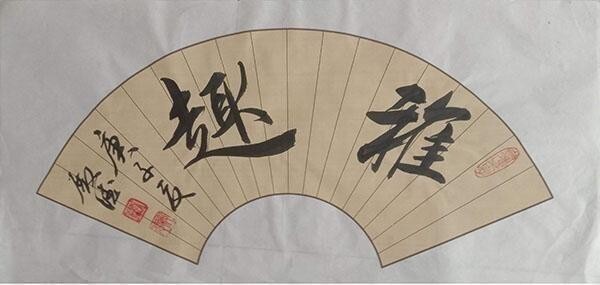 雅趣
庚子夏